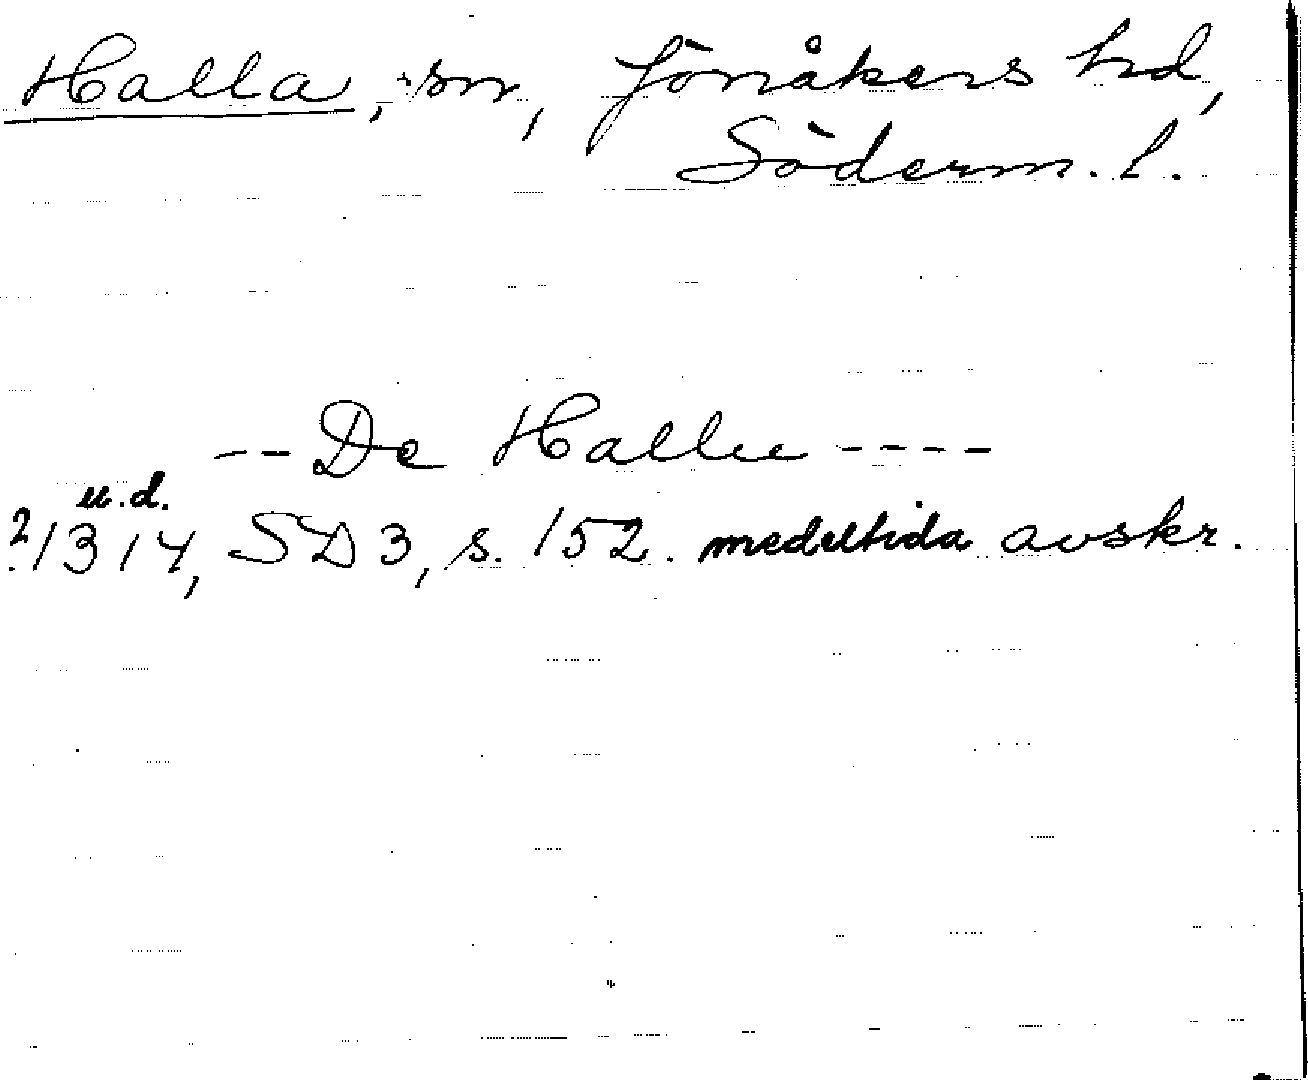 Halla, sn, Jönåkers hd,
Söderm. l.
-- De Hallu ----
u.d.
?/1314, SD 3, s. 152. medeltida avskr.